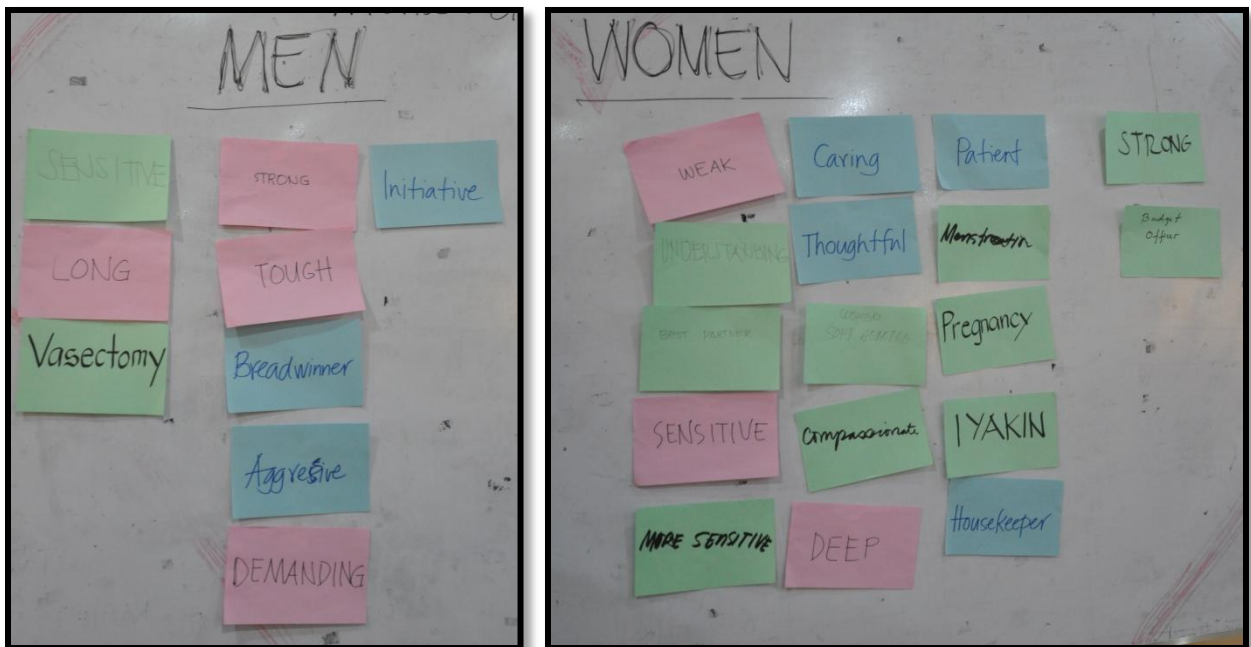 MEN
SENSITIVE
LONG
Vasectomy
STRONG
TOUGH
Breadwinner
Aggresive
DEMANDING
Initiative
WOMEN
WEAK
UNDERSTANDING
BEST PARTNER
SENSITIVE
MORE SENSITIVE
Caring
Thoughtful
Compassionate
DEEP
Patient
Menstration
Pregnancy
IYAKIN
Housekeeper
STRONG
Budget